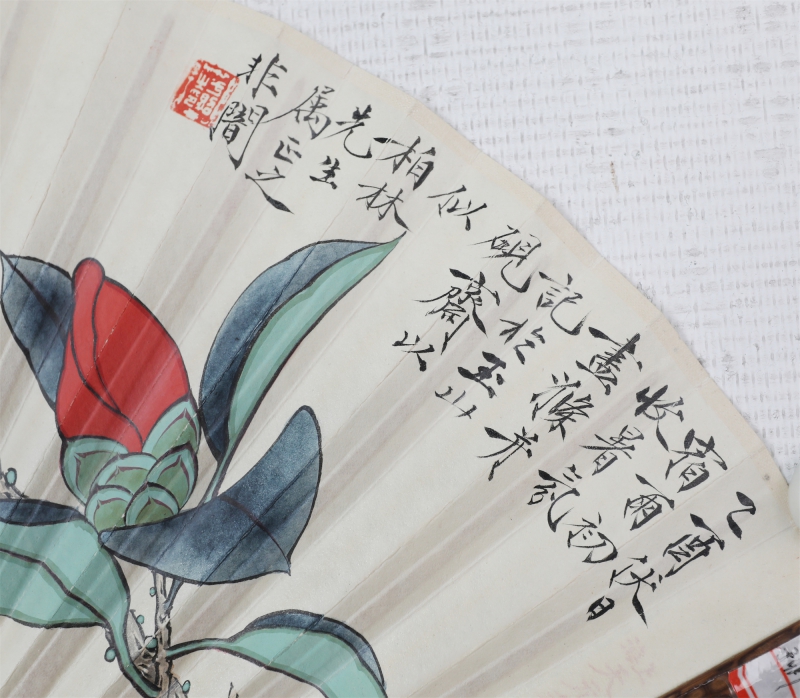 乙酉伏日
宿雨初
收暑氛
盡滌并
記於玉山
硯齋以
似
柏林
先生
属正之
非闇